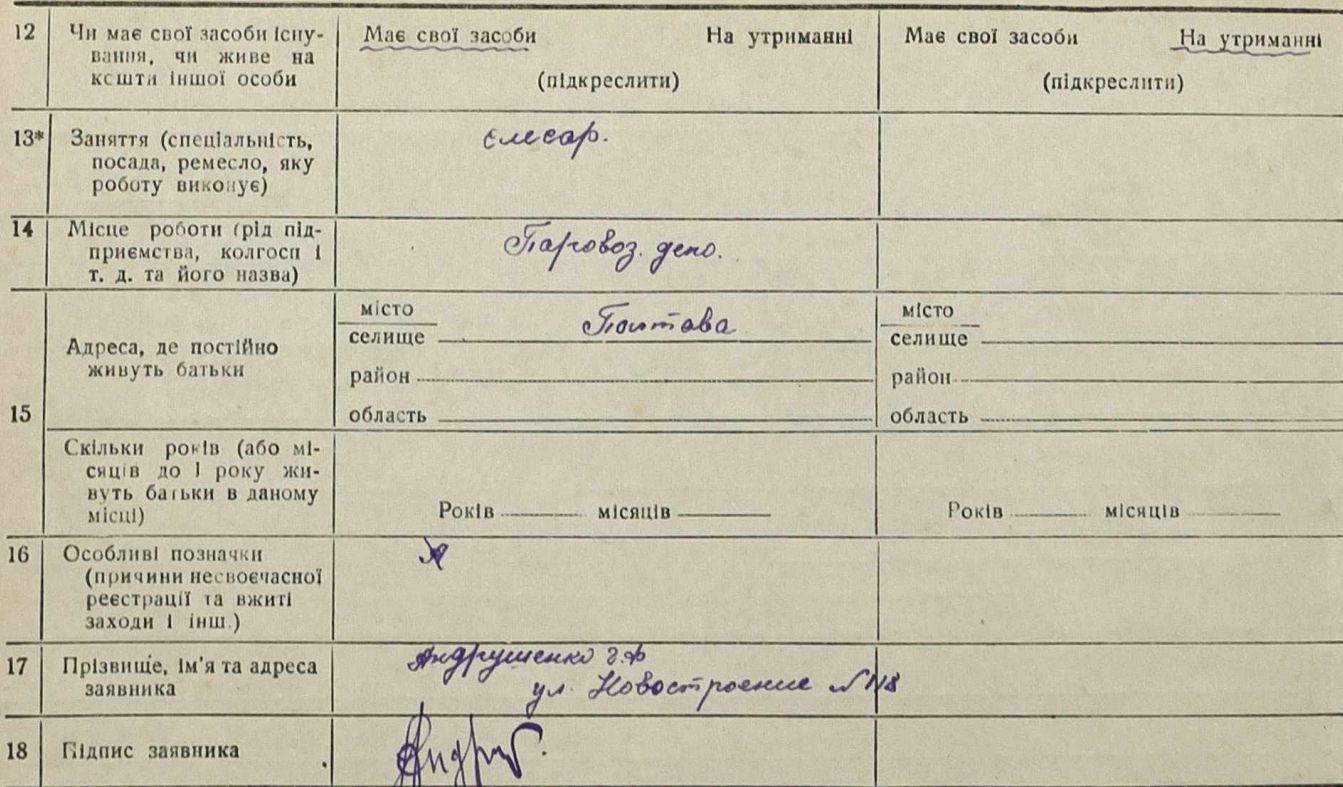 12 Чи має свої засоби існу-
вання, чи живе на
кошти іншої особи
Має свої засоби На утриманні
(підкреслити)
Має свої засоби На утриманні
(підкреслити)
13* Заняття (спеціальність,
посада, ремесло, яку
роботу виконує)
слесар.
14 Місце роботи (рід під-
приємства, колгосп і
т. д. та його назва)
Паровоз. депо.
15
Адреса, де постійно
живуть батьки
місто
селище Полтава
район
область
місто
селище
район
область
Скільки років (або мі-
сяців до 1 року жи-
вуть батьки в даному
місці)
Років місяців
Років місяців
16 Особливі позначки
(причини несвоєчасної
реєстрації та вжиті
заходи і інш.)
17 Прізвище, ім'я та адреса
заявника
Андрушенко
ул. Новостроение №
18 Підпис заявника